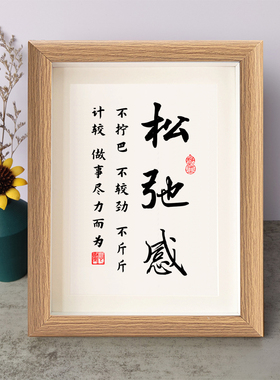 松弛感
不拧巴 不较劲 不斤斤
计较 做事尽力而为